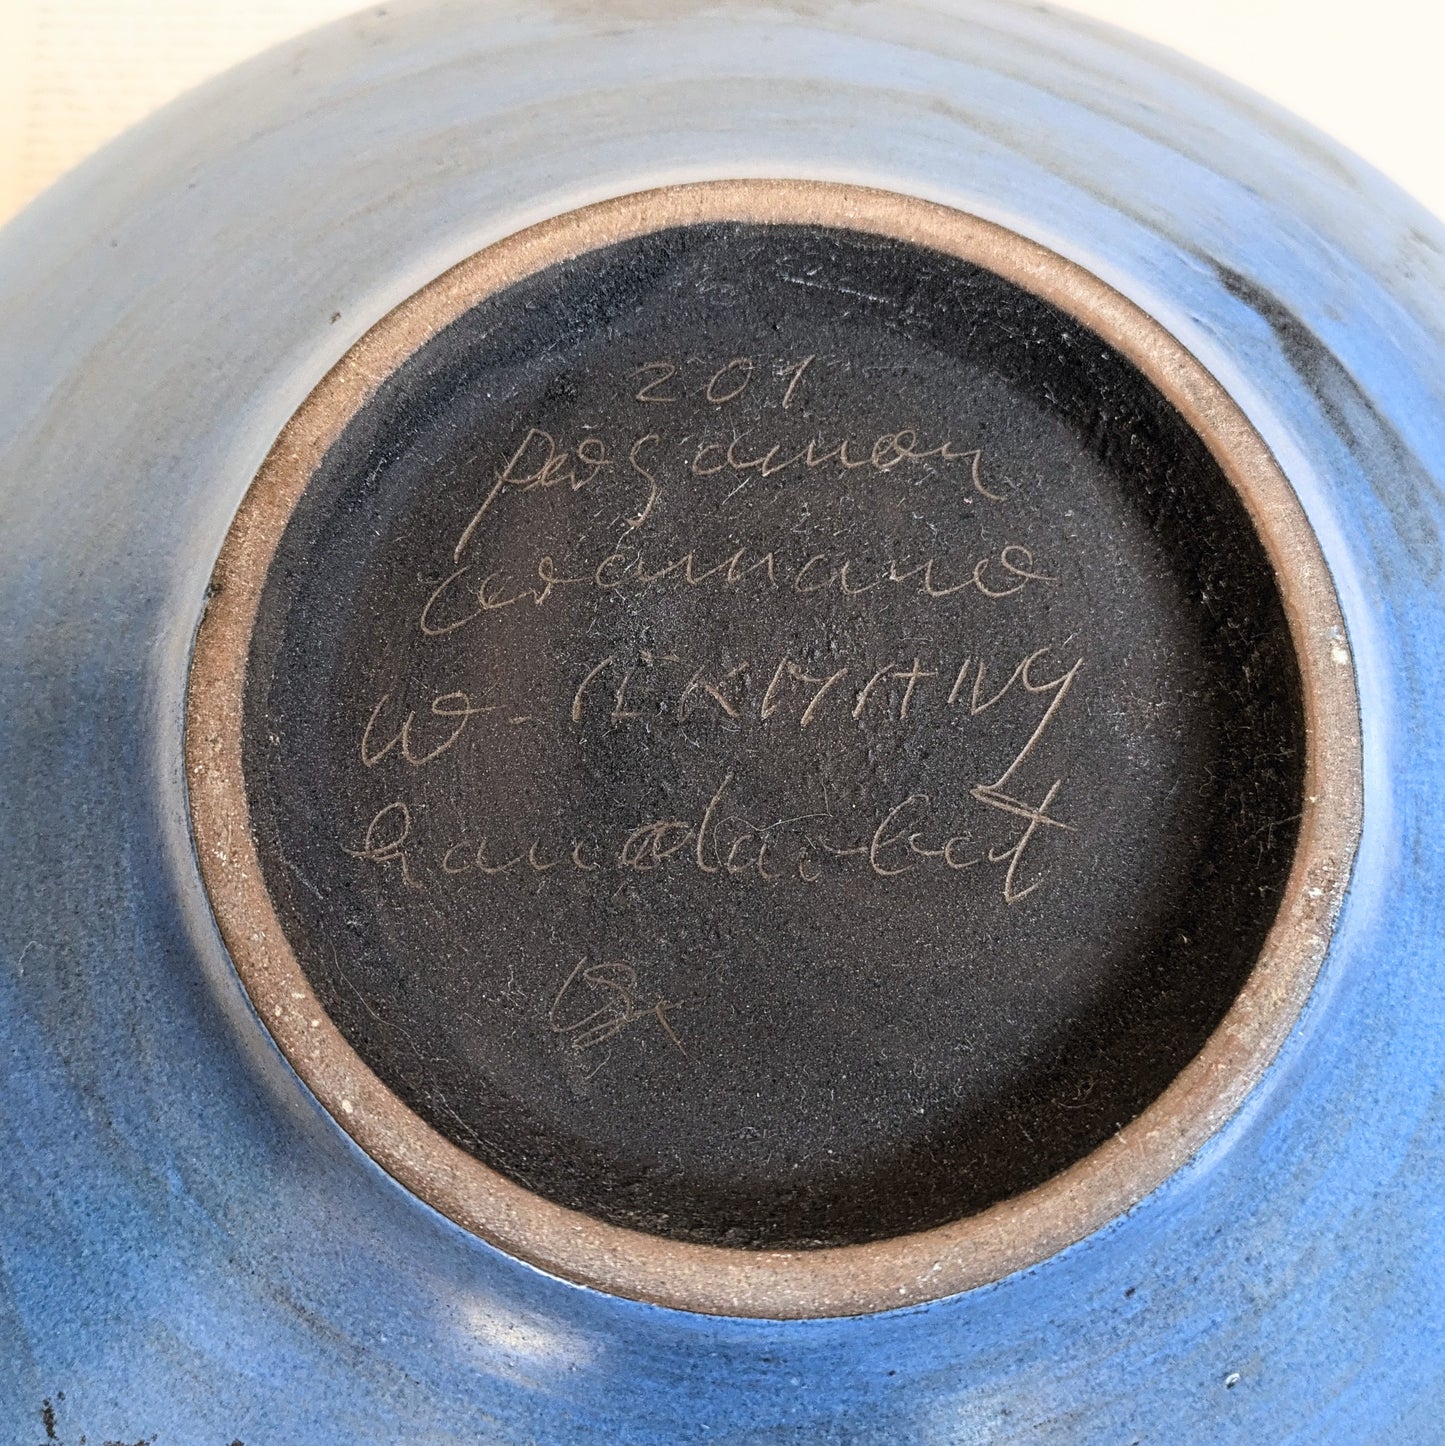 201
pergamon
ceramano
W. GERMANY
handarbeit